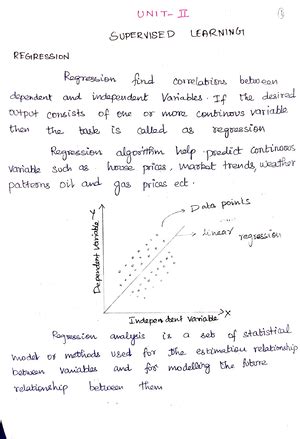 UNIT-II
SUPERVISED LEARNING
REGRESSION
Regression find correlations between
dependent and independent Variables. If the desired
output consists of one or more continous variable
then the task is called as regression
Regression algorithm help predict continuous
Variable such as house prices, market trends, weather
patterns oil and gas prices ect.
Data points
Linear
regression
Dependent Variable Y
Independent Variable X
Regression analysis is a set of statistical
model or methods used for the estimation relationship
between variables and for modelling the future
relationship between them